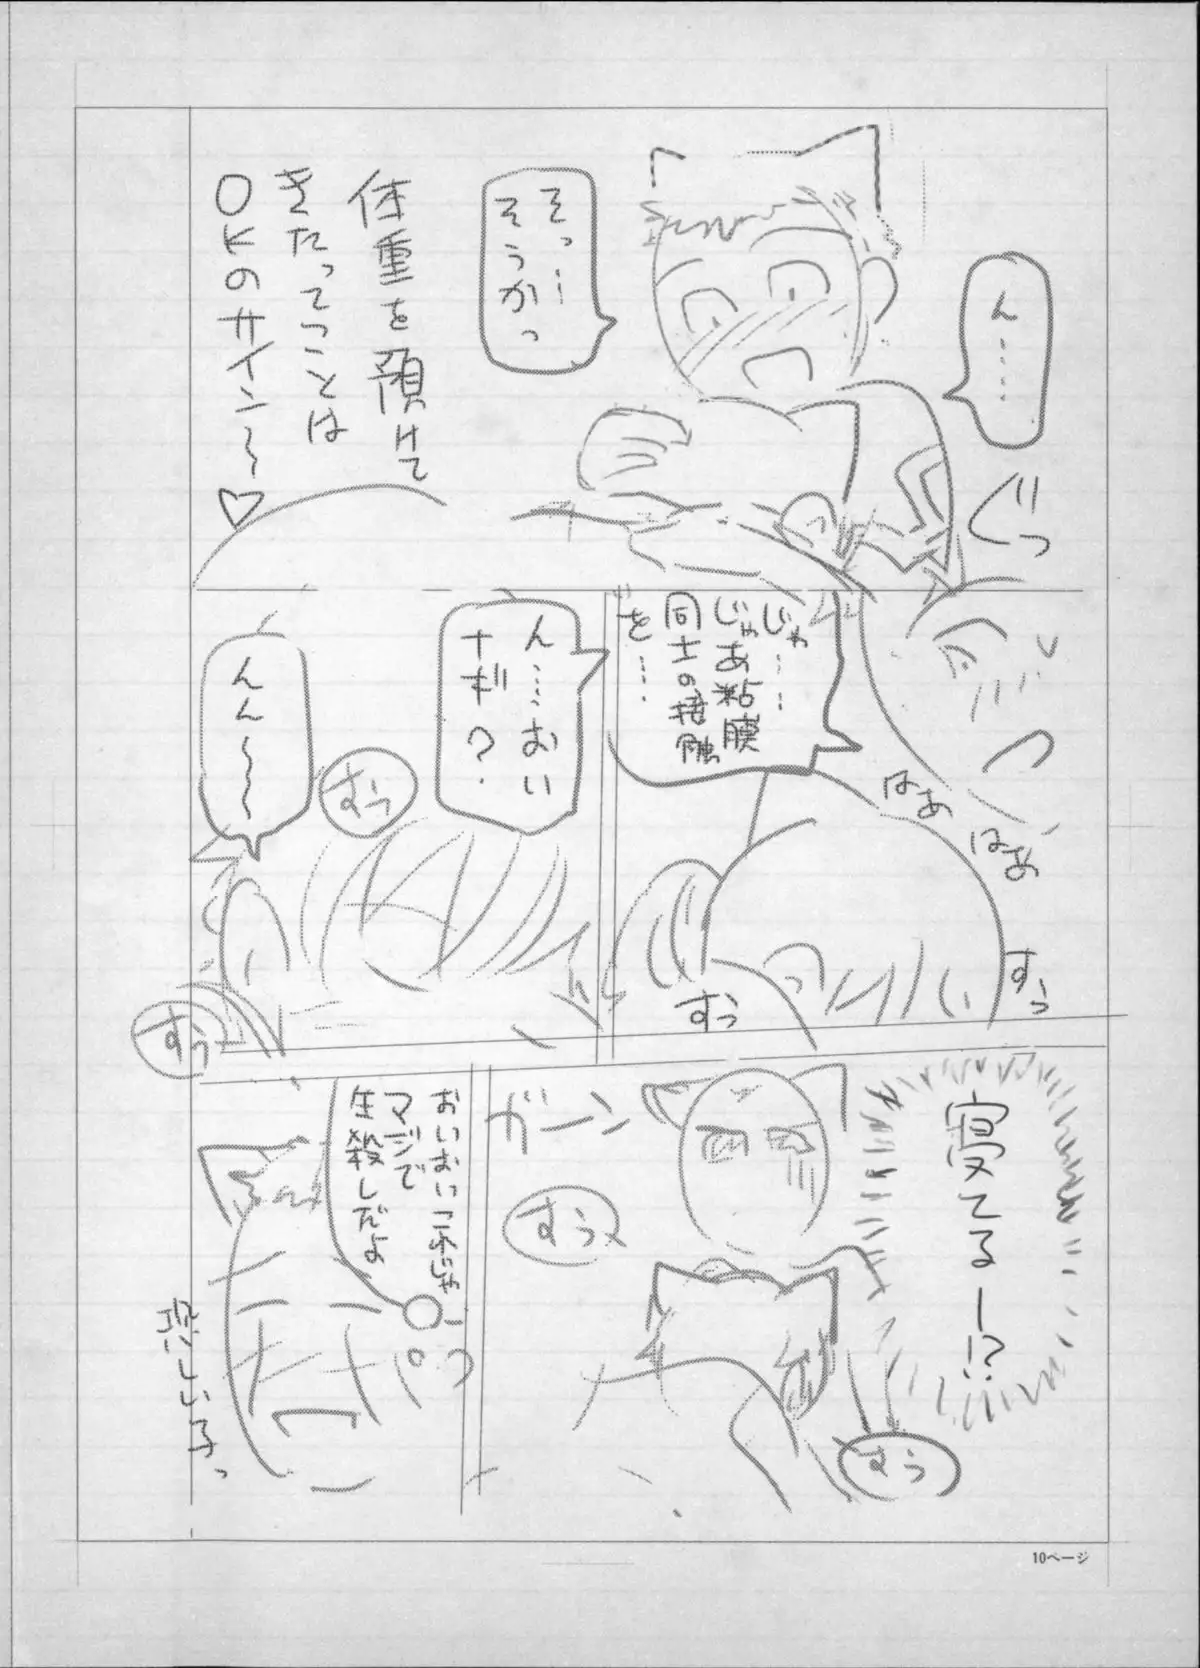 ん……
ぐっ
そっ…
そうかっ
体重を預けて
きたってことは
OKのサイン〜♡
じゃ……
じゃあ粘膜
同士の接触
を……
はあ
はあ
すっ
すうっ
ん……おい
ナギ?
すうっ
んん〜〜
すうっ
寝てるー!?
ガーン
すうっ
すう
おいおいこれじゃ
マジで
生殺しだよ
悲しい子っ
10ページ